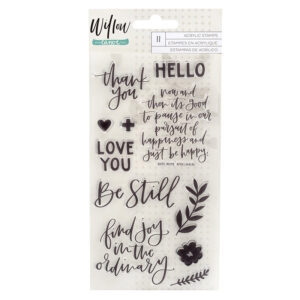 Willow
LANE
11
ACRYLIC STAMPS
ESTAMPES EN ACRYLIQUE
ESTAMPAS DE ACRÍLICO
thank
you
HELLO
now and
then it's good
to pause in our
pursuit of
happiness and
just be happy.
LOVE
YOU
Be Still
find joy
in the
ordinary